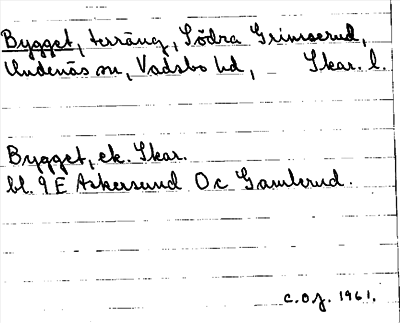 Bygget, terräng, Södra Grimserud,
Undenäs sn, Vadsbo hd, Skar. l.
Bygget, ek. Skar.
bl. 9 E Askersund O c Gamlerud.
C.O.J. 1961.